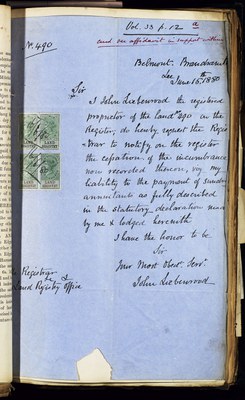 Vol. 33 p. 12 a
and see affidavit in support within
No. 490
Belmont. Brandram
Lee
June 16th 1880
Sir
I John Lieberwood the registered
proprietor of the land 490 on the
Register, do hereby request the Regis
-trar to notify on the register
the cessation of the incumbrance
now recorded thereon, viz. my
liability to the payment of sundry
annuitants as fully described
in the statutory declaration made
by me & lodged herewith
I have the honor to be
Sir
Your Most Obedt. Servt.
John Lieberwood
Registrar
Land Registry Office
LAND REGISTRY
LAND REGISTRY